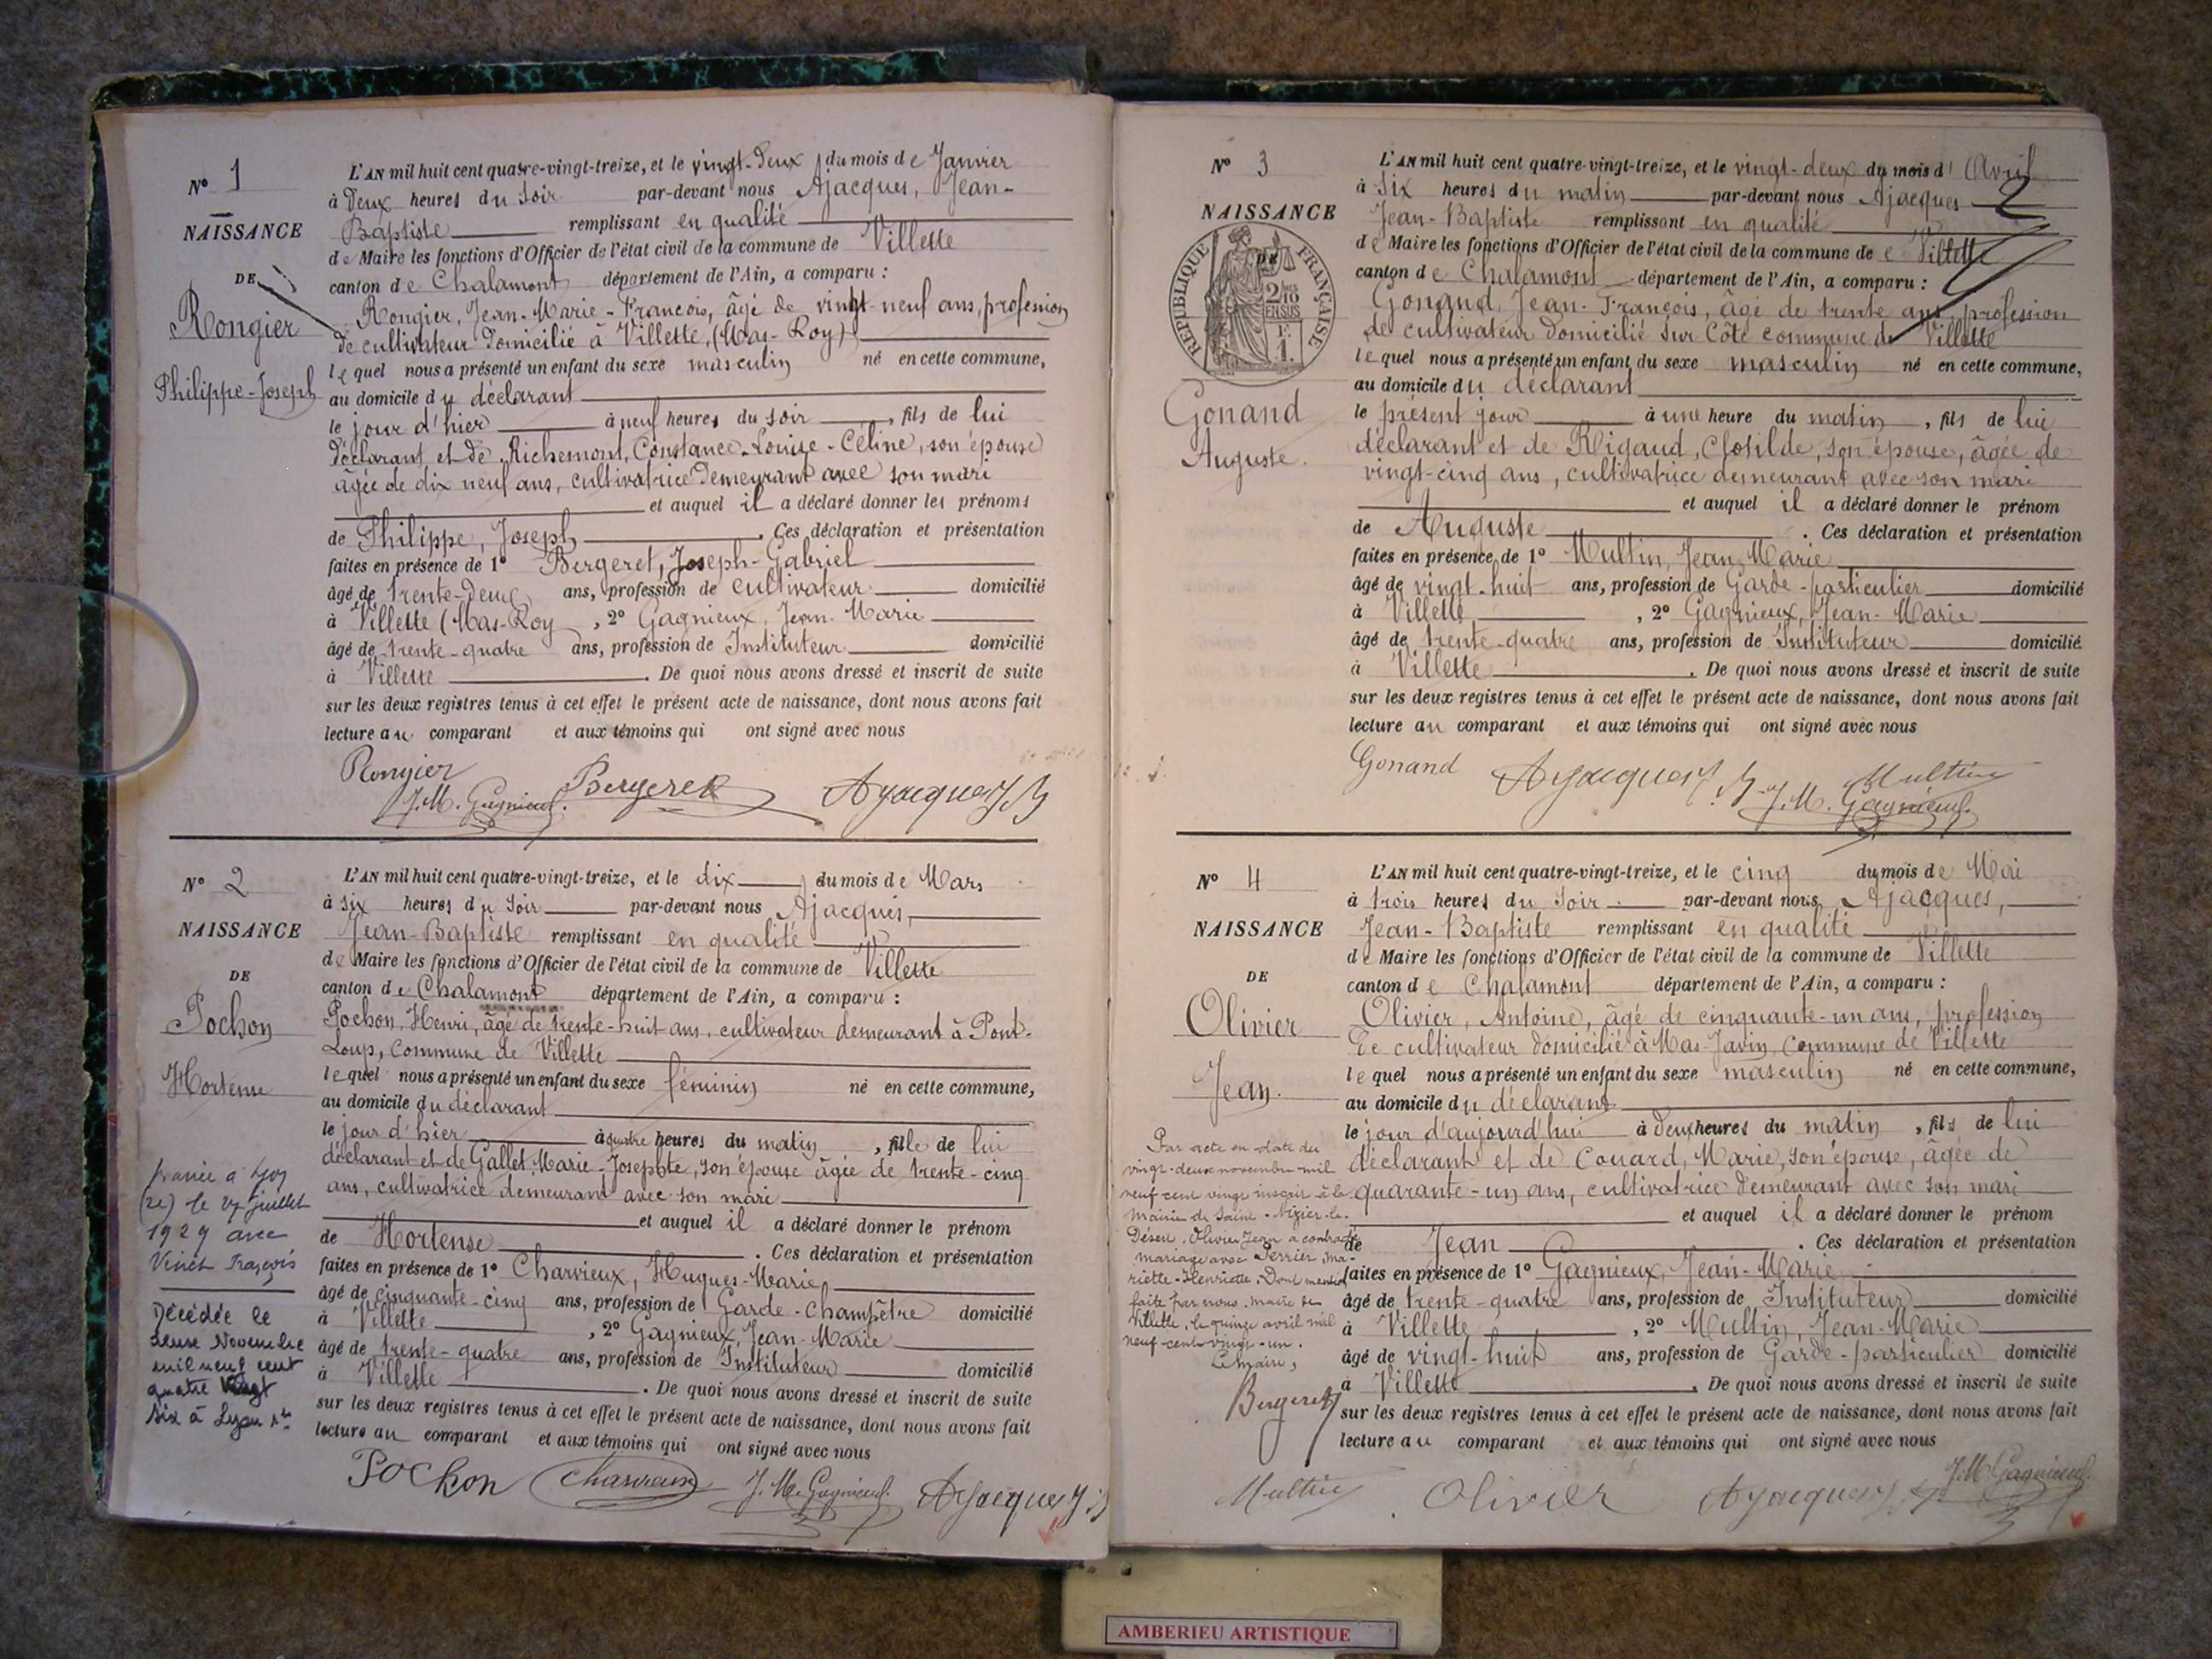 N° 1
NAISSANCE
DE
Rongier
Philippe-Joseph
L'AN mil huit cent quatre-vingt-treize, et le vingt-deux du mois de Janvier
à deux heures du soir par-devant nous Ajacques, Jean-
Baptiste remplissant en qualité
de Maire les fonctions d'Officier de l'état civil de la commune de Villette
canton de Chalamont département de l'Ain, a comparu :
Rongier, Jean-Marie-François, âgé de vingt-neuf ans, profession
de cultivateur domicilié à Villette, (Mas-Roy)
lequel nous a présenté un enfant du sexe masculin né en cette commune,
au domicile du déclarant
le jour d'hier à neuf heures du soir, fils de lui
déclarant et de Richemont, Constance-Louise-Céline, son épouse
âgée de dix neuf ans, cultivatrice demeurant avec son mari
et auquel il a déclaré donner les prénoms
de Philippe, Joseph. Ces déclaration et présentation
faites en présence de 1° Bergeret, Joseph-Gabriel
âgé de trente-deux ans, profession de cultivateur domicilié
à Villette (Mas-Roy, 2° Gagnieux, Jean-Marie
âgé de trente-quatre ans, profession de Instituteur domicilié
à Villette. De quoi nous avons dressé et inscrit de suite
sur les deux registres tenus à cet effet le présent acte de naissance, dont nous avons fait
lecture au comparant et aux témoins qui ont signé avec nous
Rongier
J.M. Gagnieux. Bergeret Ajacques J B
N° 2
NAISSANCE
DE
Pochon
Hortense
mariée à Lyon
(2e) le 27 juillet
1929 avec
Vinet François
Décédée le
Novembre
mil neuf cent
quatre vingt
six à Lyon
L'AN mil huit cent quatre-vingt-treize, et le dix du mois de Mars
à six heures du soir par-devant nous Ajacques,
Jean-Baptiste remplissant en qualité
de Maire les fonctions d'Officier de l'état civil de la commune de Villette
canton de Chalamont département de l'Ain, a comparu :
Pochon, Henri, âgé de trente-huit ans, cultivateur demeurant à Pont-
Loup, commune de Villette
lequel nous a présenté un enfant du sexe féminin né en cette commune,
au domicile du déclarant
le jour d'hier à quatre heures du matin, fille de lui
déclarant et de Gallet Marie-Josephte, son épouse âgée de trente-cinq
ans, cultivatrice demeurant avec son mari
et auquel il a déclaré donner le prénom
de Hortense. Ces déclaration et présentation
faites en présence de 1° Charvieux, Hugues-Marie
âgé de cinquante-cinq ans, profession de Garde-Champêtre domicilié
à Villette, 2° Gagnieux, Jean-Marie
âgé de trente-quatre ans, profession de Instituteur domicilié
à Villette. De quoi nous avons dressé et inscrit de suite
sur les deux registres tenus à cet effet le présent acte de naissance, dont nous avons fait
lecture au comparant et aux témoins qui ont signé avec nous
Pochon Charvieux J.M. Gagnieux. Ajacques J B
N° 3
NAISSANCE
DE
RÉPUBLIQUE FRANÇAISE
2/10 EN SUS
Gonand
Auguste.
L'AN mil huit cent quatre-vingt-treize, et le vingt-deux du mois d'Avril
à six heures du matin par-devant nous Ajacques
Jean-Baptiste remplissant en qualité
de Maire les fonctions d'Officier de l'état civil de la commune de Villette
canton de Chalamont département de l'Ain, a comparu :
Gonand, Jean-François, âgé de trente ans, profession
de cultivateur domicilié sur Côte commune de Villette
lequel nous a présenté un enfant du sexe masculin né en cette commune,
au domicile du déclarant
le présent jour à une heure du matin, fils de lui
déclarant et de Rigaud, Clotilde, son épouse, âgée de
vingt-cinq ans, cultivatrice demeurant avec son mari
et auquel il a déclaré donner le prénom
de Auguste. Ces déclaration et présentation
faites en présence de 1° Multin, Jean Marie
âgé de vingt-huit ans, profession de Garde-particulier domicilié
à Villette, 2° Gagnieux, Jean-Marie
âgé de trente-quatre ans, profession de Instituteur domicilié
à Villette. De quoi nous avons dressé et inscrit de suite
sur les deux registres tenus à cet effet le présent acte de naissance, dont nous avons fait
lecture au comparant et aux témoins qui ont signé avec nous
Gonand Ajacques J. B Multin
J.M. Gagnieux.
N° 4
NAISSANCE
DE
Olivier
Jean.
Par acte en date du
vingt-deux novembre mil
neuf cent vingt inscrit à la
Mairie de Saint-Nizier-le-
Désert, Olivier Jean a contracté
mariage avec Perrier, Ma-
riette-Henriette. Dont mention
faite par nous, maire de
Villette, le quinze avril mil
neuf-cent-vingt-un.
Le maire,
Bergeret
L'AN mil huit cent quatre-vingt-treize, et le cinq du mois de Mai
à trois heures du soir par-devant nous Ajacques,
Jean-Baptiste remplissant en qualité
de Maire les fonctions d'Officier de l'état civil de la commune de Villette
canton de Chalamont département de l'Ain, a comparu :
Olivier, Antoine, âgé de cinquante-un ans, profession
de cultivateur domicilié à Mas-Javin, commune de Villette
lequel nous a présenté un enfant du sexe masculin né en cette commune,
au domicile du déclarant
le jour d'aujourd'hui à deux heures du matin, fils de lui
déclarant et de Couard, Marie, son épouse, âgée de
quarante-un ans, cultivatrice demeurant avec son mari
et auquel il a déclaré donner le prénom
de Jean. Ces déclaration et présentation
faites en présence de 1° Gagnieux, Jean-Marie
âgé de trente-quatre ans, profession de Instituteur domicilié
à Villette, 2° Multin, Jean-Marie
âgé de vingt-huit ans, profession de Garde-particulier domicilié
à Villette. De quoi nous avons dressé et inscrit de suite
sur les deux registres tenus à cet effet le présent acte de naissance, dont nous avons fait
lecture au comparant et aux témoins qui ont signé avec nous
Multin Olivier Ajacques J.M. Gagnieux.
AMBERIEU ARTISTIQUE